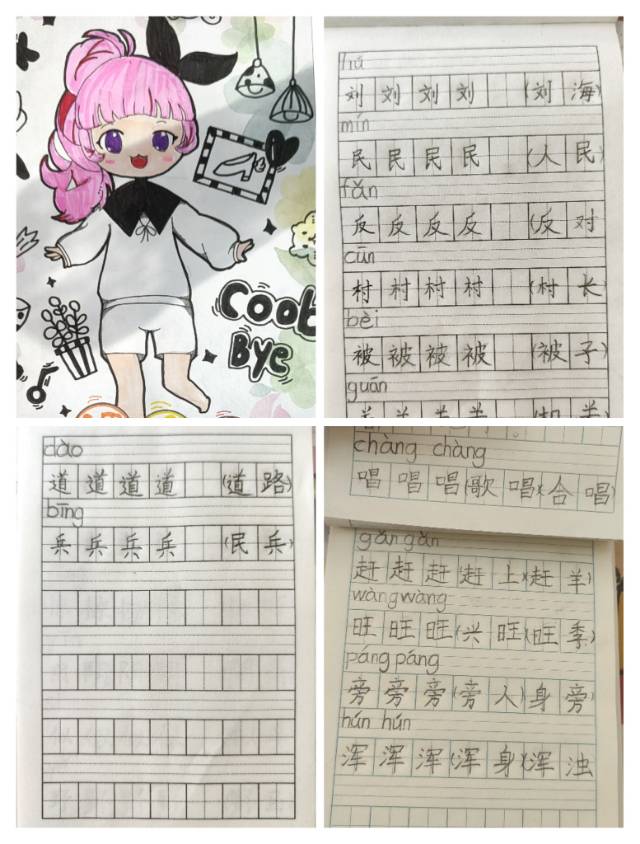 COOL
BYE
liú
刘 刘 刘 刘 (刘 海)
mín
民 民 民 民 (人 民)
fǎn
反 反 反 反 (反 对
cūn
村 村 村 村 (村 长
bèi
被 被 被 被 (被 子
guān
dào
道 道 道 道 (道 路)
bīng
兵 兵 兵 兵 (民 兵)
chàng chàng
唱 唱 唱(歌 唱)(合 唱)
gǎn gǎn
赶 赶 赶(赶 上)(赶 羊)
wàng wàng
旺 旺 旺(兴 旺)(旺 季)
páng páng
旁 旁 旁(旁 人)(身 旁)
hún hún
浑 浑 浑(浑 身)(浑 浊